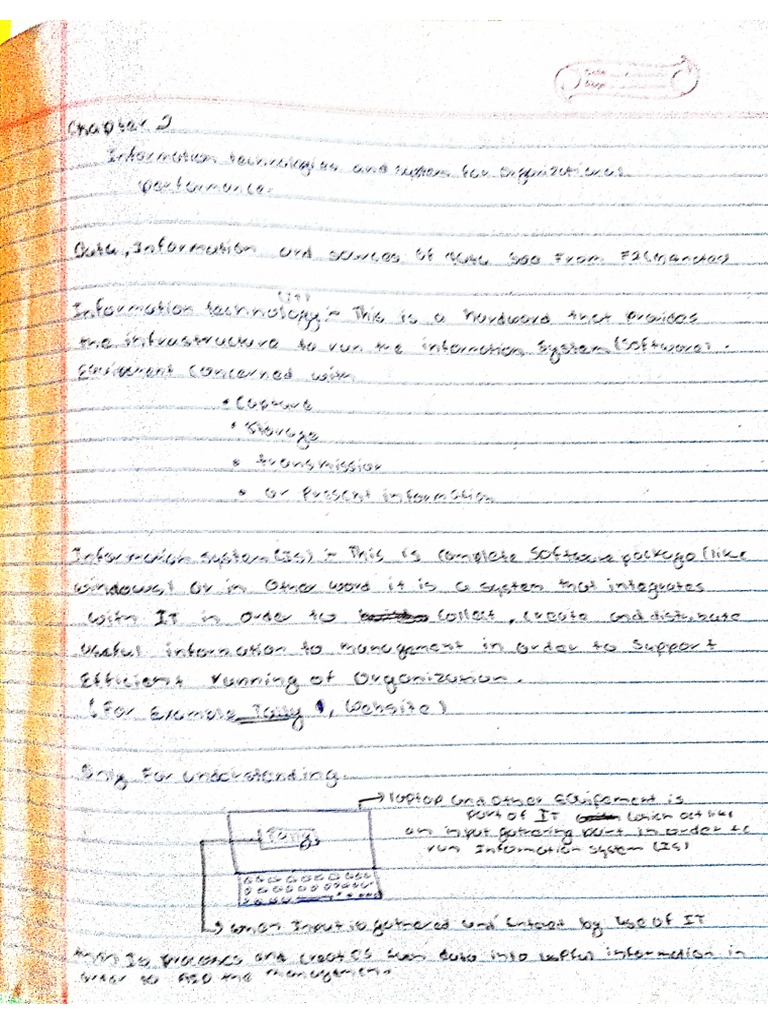 Date
Page
Chapter 2
Information technologies and system for organizational
performance.
Data, Information and sources of data see from F2(Manctad
(IT)
Information technology :- This is a hardward that provides
the infrastructure to run the information system (software).
Equipment concerned with
• Capture
• Storage
• transmission
• or Present information
Information system (IS) :- This is complete software package (like
windows) or in other word it is a system that integrates
with IT in order to collect, create and distribute
useful information to management in order to support
Efficient running of organization.
(For Example Tally, Website)
Only for understanding
→ laptop and other Equipement is
part of IT which act like
an input gathering part in order to
run Information system (IS)
Tally
→ when Input is gathered and entered by use of IT
then Is process and creates such data into useful information in
order to aid the management.